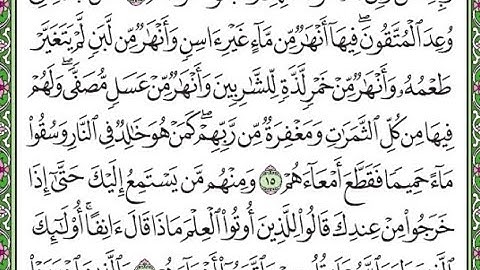 وُعِدَ ٱلْمُتَّقُونَ ۖ فِيهَآ أَنْهَٰرٌ مِّن مَّآءٍ غَيْرِ ءَاسِنٍ وَأَنْهَٰرٌ مِّن لَّبَنٍ لَّمْ يَتَغَيَّرْ
طَعْمُهُۥ وَأَنْهَٰرٌ مِّنْ خَمْرٍ لَّذَّةٍ لِّلشَّٰرِبِينَ وَأَنْهَٰرٌ مِّنْ عَسَلٍ مُّصَفًّى ۖ وَلَهُمْ
فِيهَا مِن كُلِّ ٱلثَّمَرَٰتِ وَمَغْفِرَةٌ مِّن رَّبِّهِمْ ۖ كَمَنْ هُوَ خَٰلِدٌ فِى ٱلنَّارِ وَسُقُوا۟
مَآءً حَمِيمًا فَقَطَّعَ أَمْعَآءَهُمْ ١٥ وَمِنْهُم مَّن يَسْتَمِعُ إِلَيْكَ حَتَّىٰٓ إِذَا
خَرَجُوا۟ مِنْ عِندِكَ قَالُوا۟ لِلَّذِينَ أُوتُوا۟ ٱلْعِلْمَ مَاذَا قَالَ ءَانِفًا ۚ أُو۟لَٰٓئِكَ